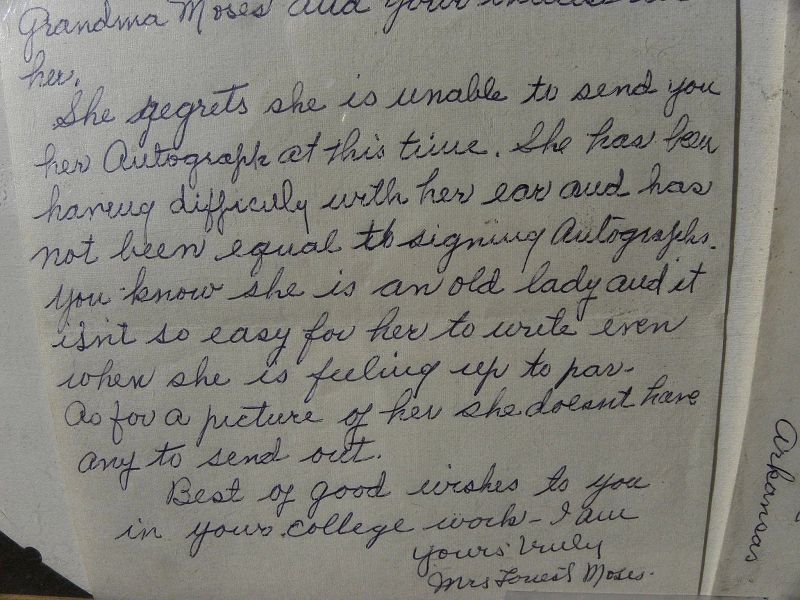 Grandma Moses and your interest in
her.
She regrets she is unable to send you
her Autograph at this time. She has been
having difficulty with her ear and has
not been equal to signing Autographs.
You know she is an old lady and it
isn't so easy for her to write even
when she is feeling up to par.
As for a picture of her she doesn't have
any to send out.
Best of good wishes to you
in your college work - I am
yours truly
Mrs Forrest Moses.
Arkansas